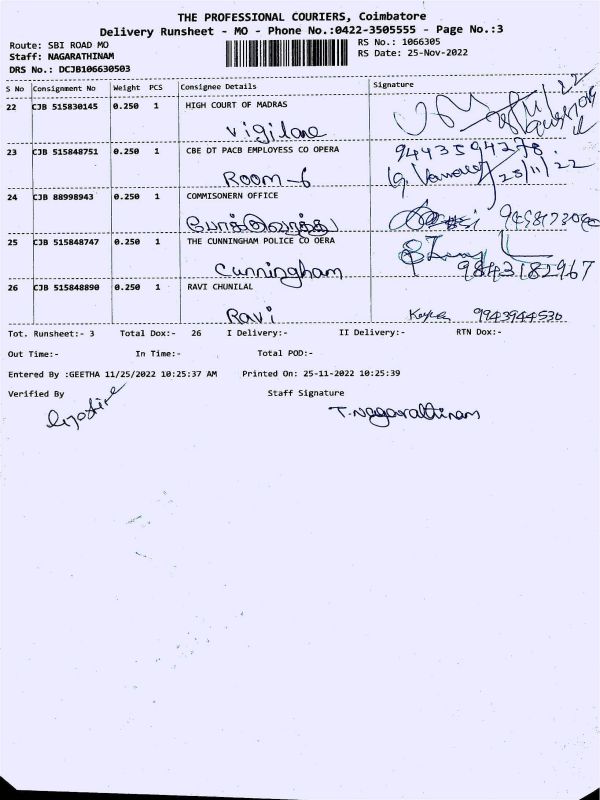 THE PROFESSIONAL COURIERS, Coimbatore
Delivery Runsheet - MO - Phone No.:0422-3505555 - Page No.:3
Route: SBI ROAD MO
RS No.: 1066305
Staff: NAGARATHINAM
RS Date: 25-Nov-2022
DRS No.: DCJB106630503
S No Consignment No Weight PCS Consignee Details Signature
22 CJB 515830145 0.250 1 HIGH COURT OF MADRAS
23 CJB 515848751 0.250 1 CBE DT PACB EMPLOYESS CO OPERA 9443594278
Room-6 25/11/22
24 CJB 88998943 0.250 1 COMMISONERN OFFICE
25 CJB 515848747 0.250 1 THE CUNNINGHAM POLICE CO OERA
Cunningham 9843182967
26 CJB 515848890 0.250 1 RAVI CHUNILAL
Ravi 9943944530
Tot. Runsheet:- 3 Total Dox:- 26 I Delivery:- II Delivery:- RTN Dox:-
Out Time:- In Time:- Total POD:-
Entered By :GEETHA 11/25/2022 10:25:37 AM Printed On: 25-11-2022 10:25:39
Verified By Staff Signature
T.Nagarathinam